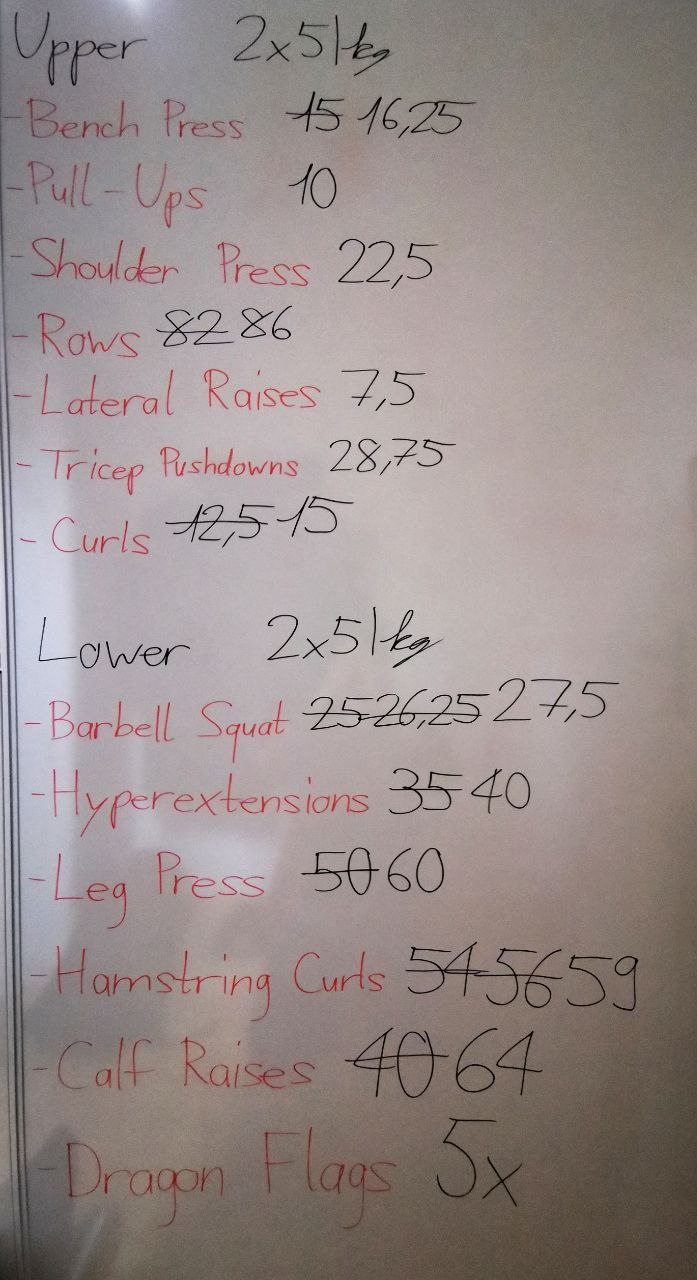 Upper 2x5|kg
-Bench Press 15 16,25
-Pull-Ups 10
-Shoulder Press 22,5
-Rows 82 86
-Lateral Raises 7,5
-Tricep Pushdowns 28,75
-Curls 12,5 15
Lower 2x5|kg
-Barbell Squat 25 26,25 27,5
-Hyperextensions 35 40
-Leg Press 50 60
-Hamstring Curls 54 56 59
-Calf Raises 40 64
-Dragon Flags 5x